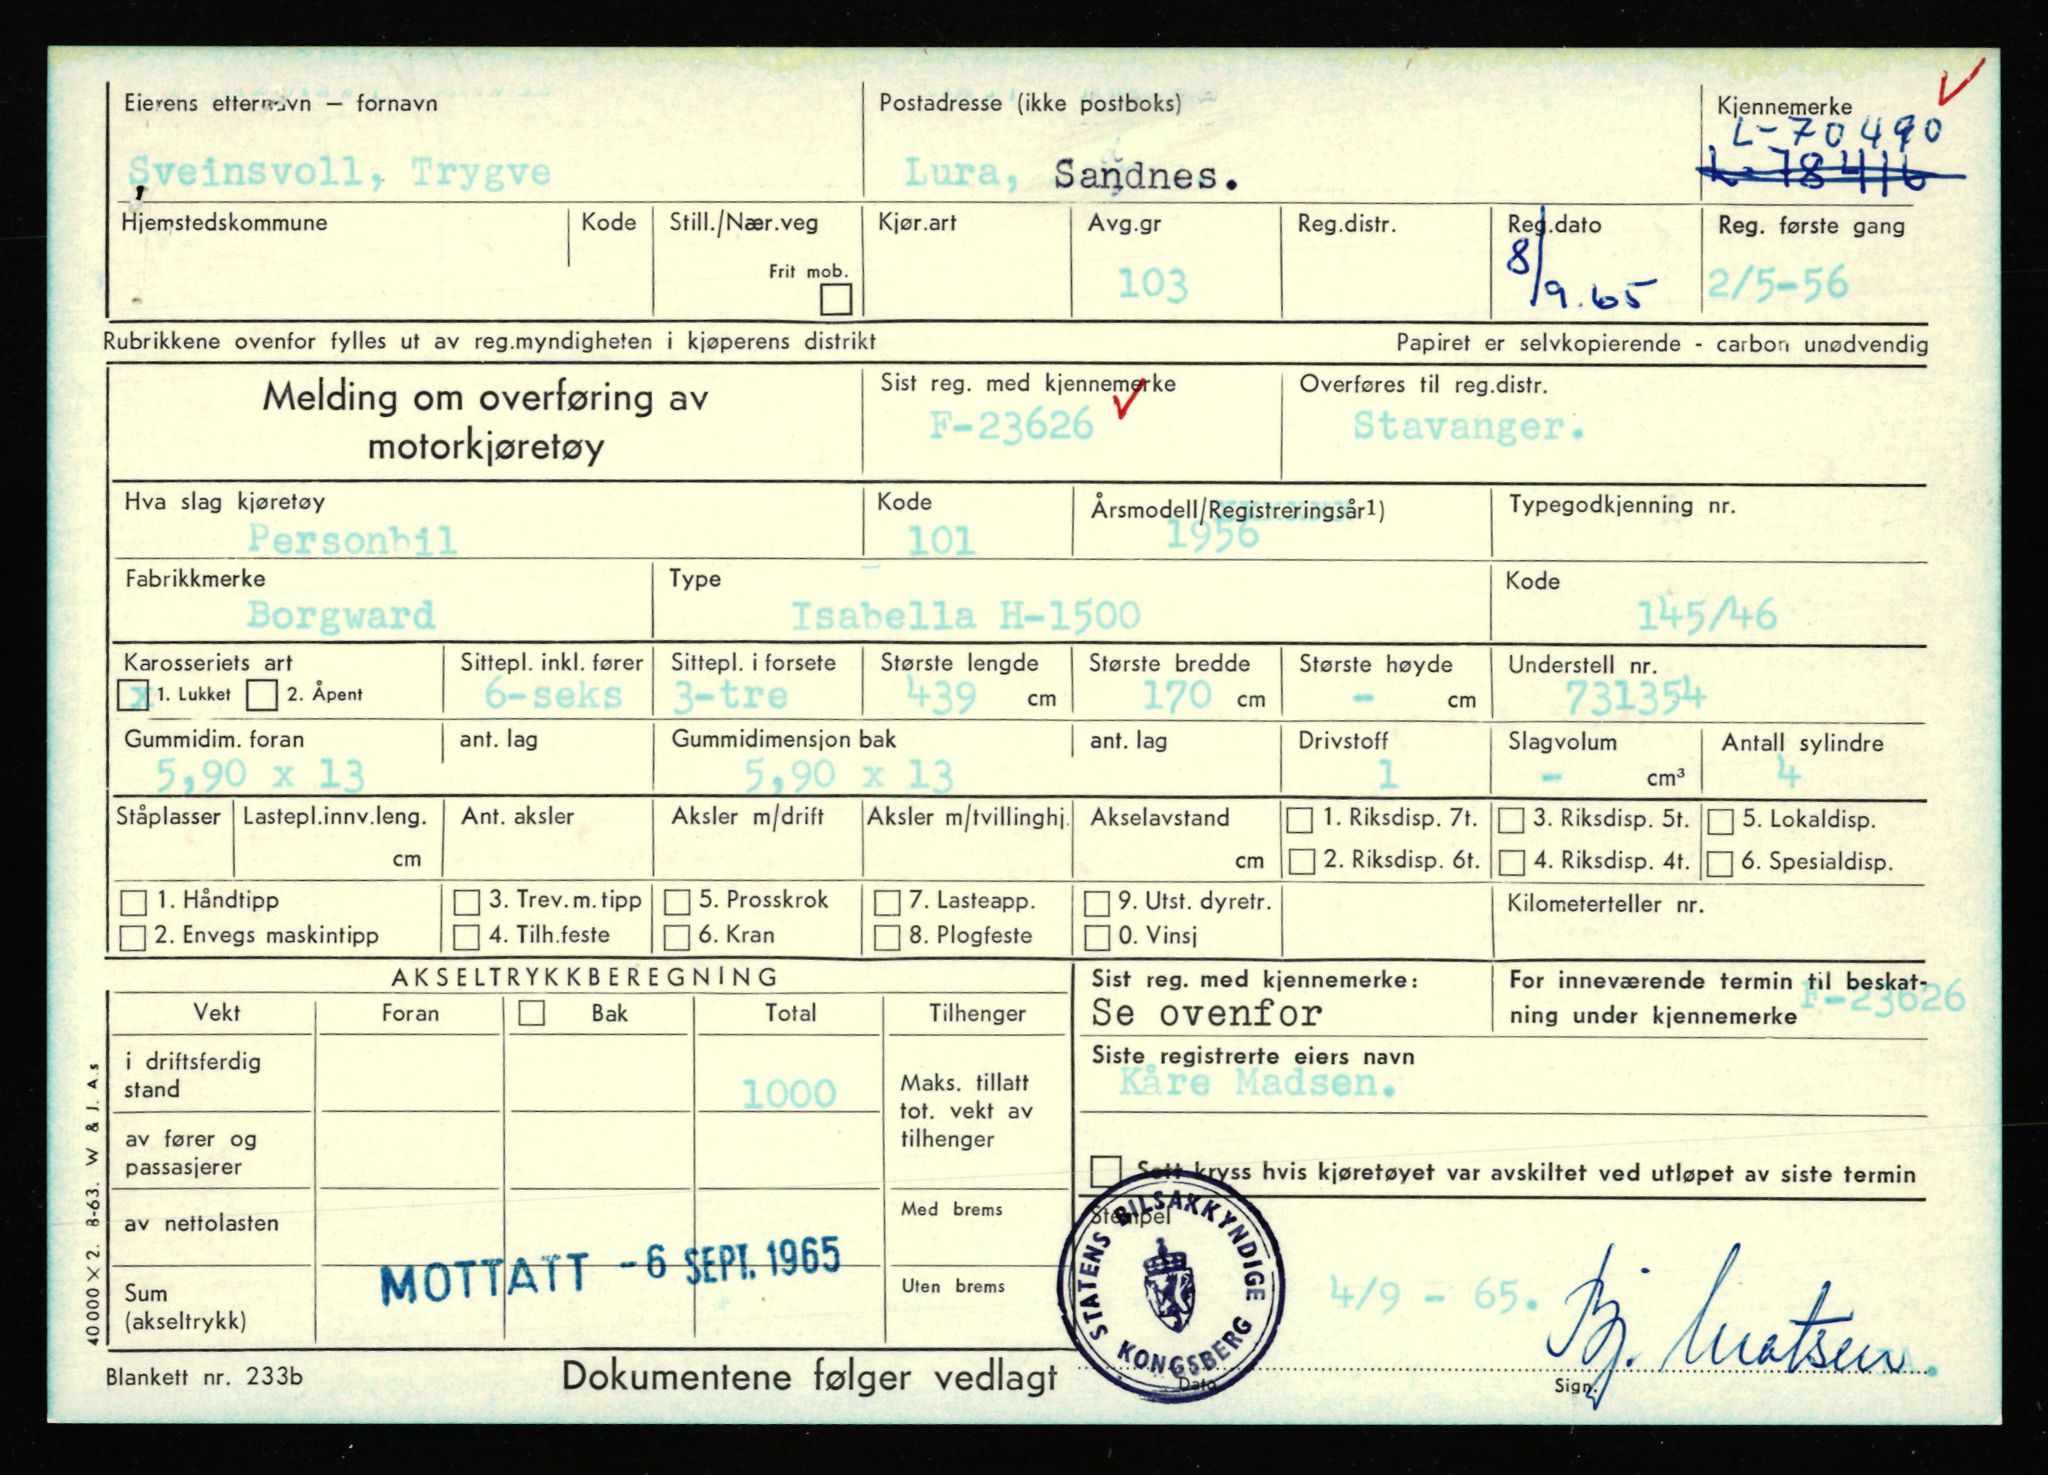 Eierens etternavn – fornavn
Postadresse (ikke postboks)
Kjennemerke
L-70490
Sveinsvoll, Trygve
Lura, Sandnes.
L-78416
Hjemstedskommune
Kode
Still./Nær.veg
Kjør.art
Avg.gr
Reg.distr.
Reg.dato
Reg. første gang
Frit mob.
103
8/9.65
2/5-56
Rubrikkene ovenfor fylles ut av reg.myndigheten i kjøperens distrikt
Papiret er selvkopierende - carbon unødvendig
Melding om overføring av
motorkjøretøy
Sist reg. med kjennemerke
F-23626
Overføres til reg.distr.
Stavanger.
Hva slag kjøretøy
Personbil
Kode
101
Årsmodell/Registreringsår1)
1956
Typegodkjenning nr.
Fabrikkmerke
Borgward
Type
Isabella H-1500
Kode
145/46
Karosseriets art
x 1. Lukket 2. Åpent
Sittepl. inkl. fører
6-seks
Sittepl. i forsete
3-tre
Største lengde
439 cm
Største bredde
170 cm
Største høyde
- cm
Understell nr.
731354
Gummidim. foran
5,90 x 13
ant. lag
Gummidimensjon bak
5,90 x 13
ant. lag
Drivstoff
1
Slagvolum
- cm³
Antall sylindre
4
Ståplasser
Lastepl.innv.leng.
cm
Ant. aksler
Aksler m/drift
Aksler m/tvillinghj.
Akselavstand
cm
1. Riksdisp. 7t.
2. Riksdisp. 6t.
3. Riksdisp. 5t.
4. Riksdisp. 4t.
5. Lokaldisp.
6. Spesialdisp.
1. Håndtipp
2. Envegs maskintipp
3. Trev.m.tipp
4. Tilh.feste
5. Prosskrok
6. Kran
7. Lasteapp.
8. Plogfeste
9. Utst. dyretr.
0. Vinsj
Kilometerteller nr.
AKSELTRYKKBEREGNING
Vekt
Foran
Bak
Total
Tilhenger
i driftsferdig
stand
1000
Maks. tillatt
tot. vekt av
tilhenger
av fører og
passasjerer
av nettolasten
Med brems
Sum
(akseltrykk)
Uten brems
MOTTATT - 6 SEPT. 1965
Sist reg. med kjennemerke:
Se ovenfor
For inneværende termin til beskat-
ning under kjennemerke F-23626
Siste registrerte eiers navn
Kåre Madsen.
Sett kryss hvis kjøretøyet var avskiltet ved utløpet av siste termin
Stempel
STATENS BILSAKKYNDIGE
KONGSBERG
4/9 - 65.
Bj. Matsen
Dato
Sign.
Blankett nr. 233b
Dokumentene følger vedlagt
40 000 × 2. 8-63. W & J. A.s